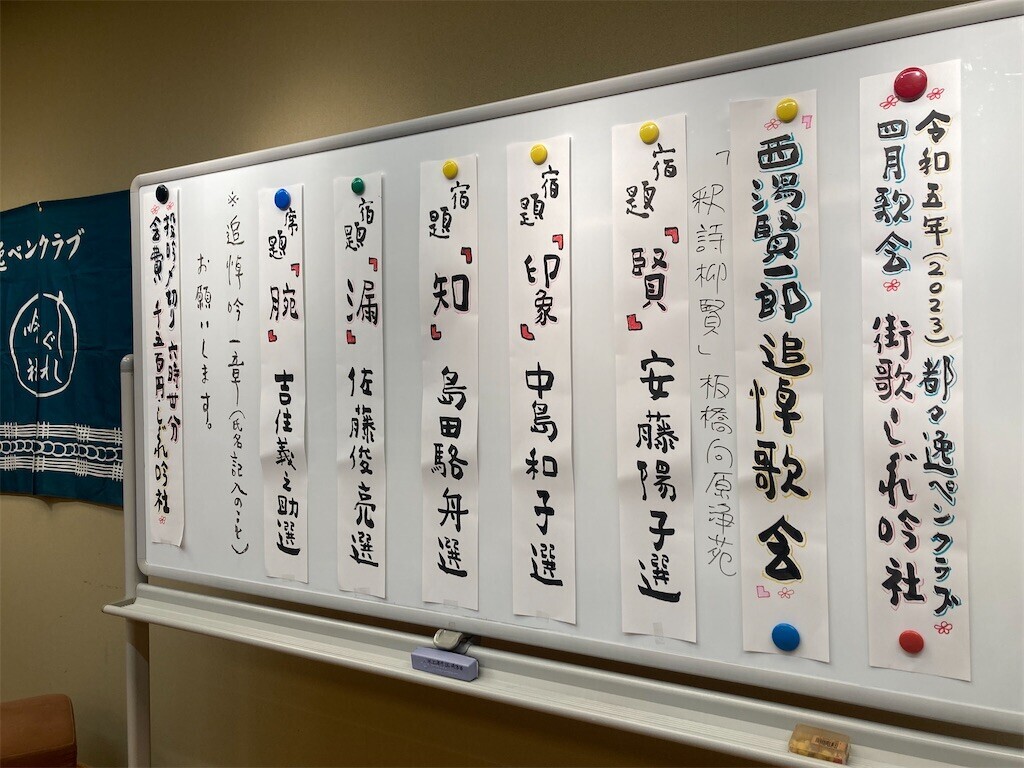 令和五年(2023) 都々逸ペンクラブ
四月歌会 街歌しぐれ吟社
西潟賢一郎追悼歌会
「釈詩柳賢」板橋向原浄苑
宿題「賢」安藤陽子選
宿題「印象」中島和子選
宿題「知」島田駱舟選
宿題「漏」佐藤俊亮選
席題「腕」吉住義之助選
※追悼吟一章(氏名記入のこと)
お願いします。
投吟〆切り 六時廿分
会費 千五百円 しぐれ吟社
逸ペンクラブ
しぐれ
吟社